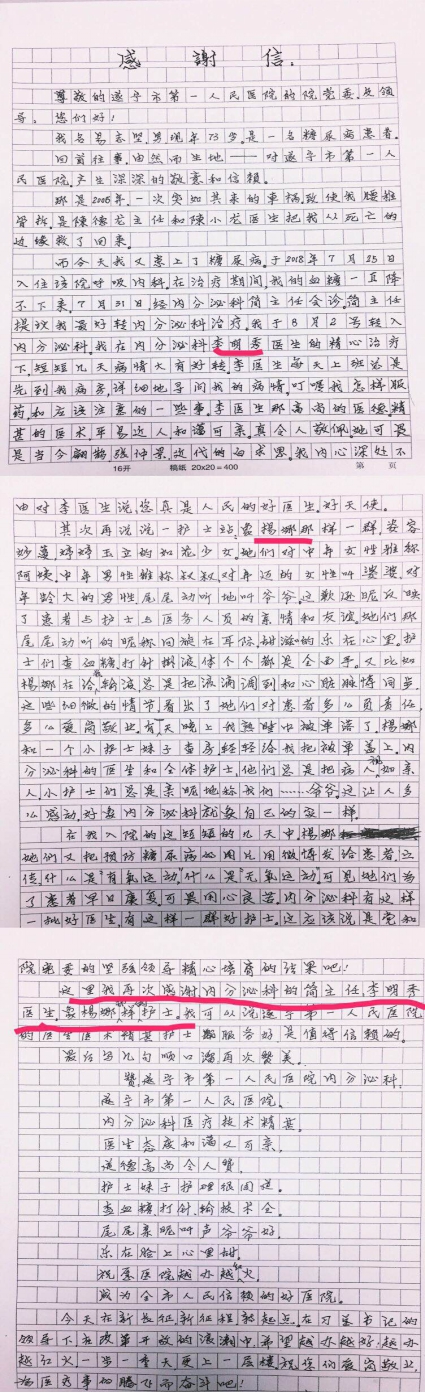 感謝信.
尊敬的遂宁市第一人民医院的院党委.及领
导,您们好!
我名易志坚.男现年73岁.是一名糖尿病患者.
回首往事.由然而生地——对遂宁市第一人
民医院.产生深深的敬意和信赖.
那是2005年一次突如其来的车祸.致使我腰椎
骨折.是陳德龙主任和陳小龙医生把我从死亡的
边缘救了回来.
而今天我又患上了糖尿病.于2018年7月25日
入住该院呼吸内科.在治疗期间我的血糖一直降
不下来.7月31日.经内分泌科简主任会诊.简主任
提议我最好转内分泌科治疗.我于8月2号转入
内分泌科.我在内分泌科李明秀医生的精心治疗
下短短几天病情大有好转.李医生每天上班总是
先到我病房.详细地寻问我的病情.叮嘱我怎样服
药和应该注意的一些事.李医生那高尚的医德.精
甚的医术.平易近人和蔼可亲.真令人敬佩.她可是
是当今翩鹊.张仲景.近代的白求恩.我内心深处不
16开 稿紙 20x20=400 第 页
由对李医生说.您真是人民的好医生.好天使.
其次再说说一护士站.象楊娜那样一群.姿容
妙蔓.婷婷玉立的如花少女.她们对中年女性雅称
阿姨.中年男性雅称叔叔.对年迈的女性叫婆婆.对
年龄大的男性.尾尾动听地叫爷爷.这歀逊昵反映
了患者与护士与医务人员的亲情和友谊.她们那
尾尾动听的昵称回旋在耳际.甜滋的乐在心里.护
士们查血糖.打针.掛液体个个都是全面手.又比如
楊娜在给输液总是把液滴调到和心脏脉愽同步.
这些细微的情节看出了她们对患者多么负责任.
多么爱崗敬业.有一天晚上我熟睡中被单落了.楊娜
和一个小护士妹子查房轻轻给我把被單盖上.内
分泌科的医生和全体护士.他们总是把病人視如亲
人.小护士们总是亲昵地称我们……爷爷.这让人多
么感动.好象内分泌科就象自己的家一样.
在我入院的这短短的几天中.楊娜
她们又把预防糖尿病的用几用微愽发给患者.宣
传.什么是“有氧运动”.什么是“无氧运动”.可见她们为
了患者早日康复.可是用心良苦.内分泌科有这样
一批好医生.有这样一群好护士.这应该说是党和
院党委的坚强领导.精心培育的结果吧!
这里我再次感谢内分泌科的简主任.李明秀
医生.象楊娜样护士.我可以说遂宁第一人民医院
的医生医术精甚护士服务好是值得信賴的.
最后以几句顺口溜再次赞美.
赞.遂宁市第一人民医院内分泌科.
遂宁市第一人民医院.
内分泌科医疗技术精甚.
医生态度和蔼又可亲.
道德高尚令人赞.
护士妹子护理很周道.
查血糖.打针.输技术全.
尾尾亲昵叫声爷爷好.
乐在脸上心里甜.
祝愿医院越办越红火.
成为全市人民信赖的好医院.
今天在新长征.新征程新起点.在习총书记的
领导下.在改革开放的浪潮中.希望越办越好.越办
越红火.一当一季天更上一层楼.祝您们爱崗敬业.
为医疗事的腾飞而奋斗吧!